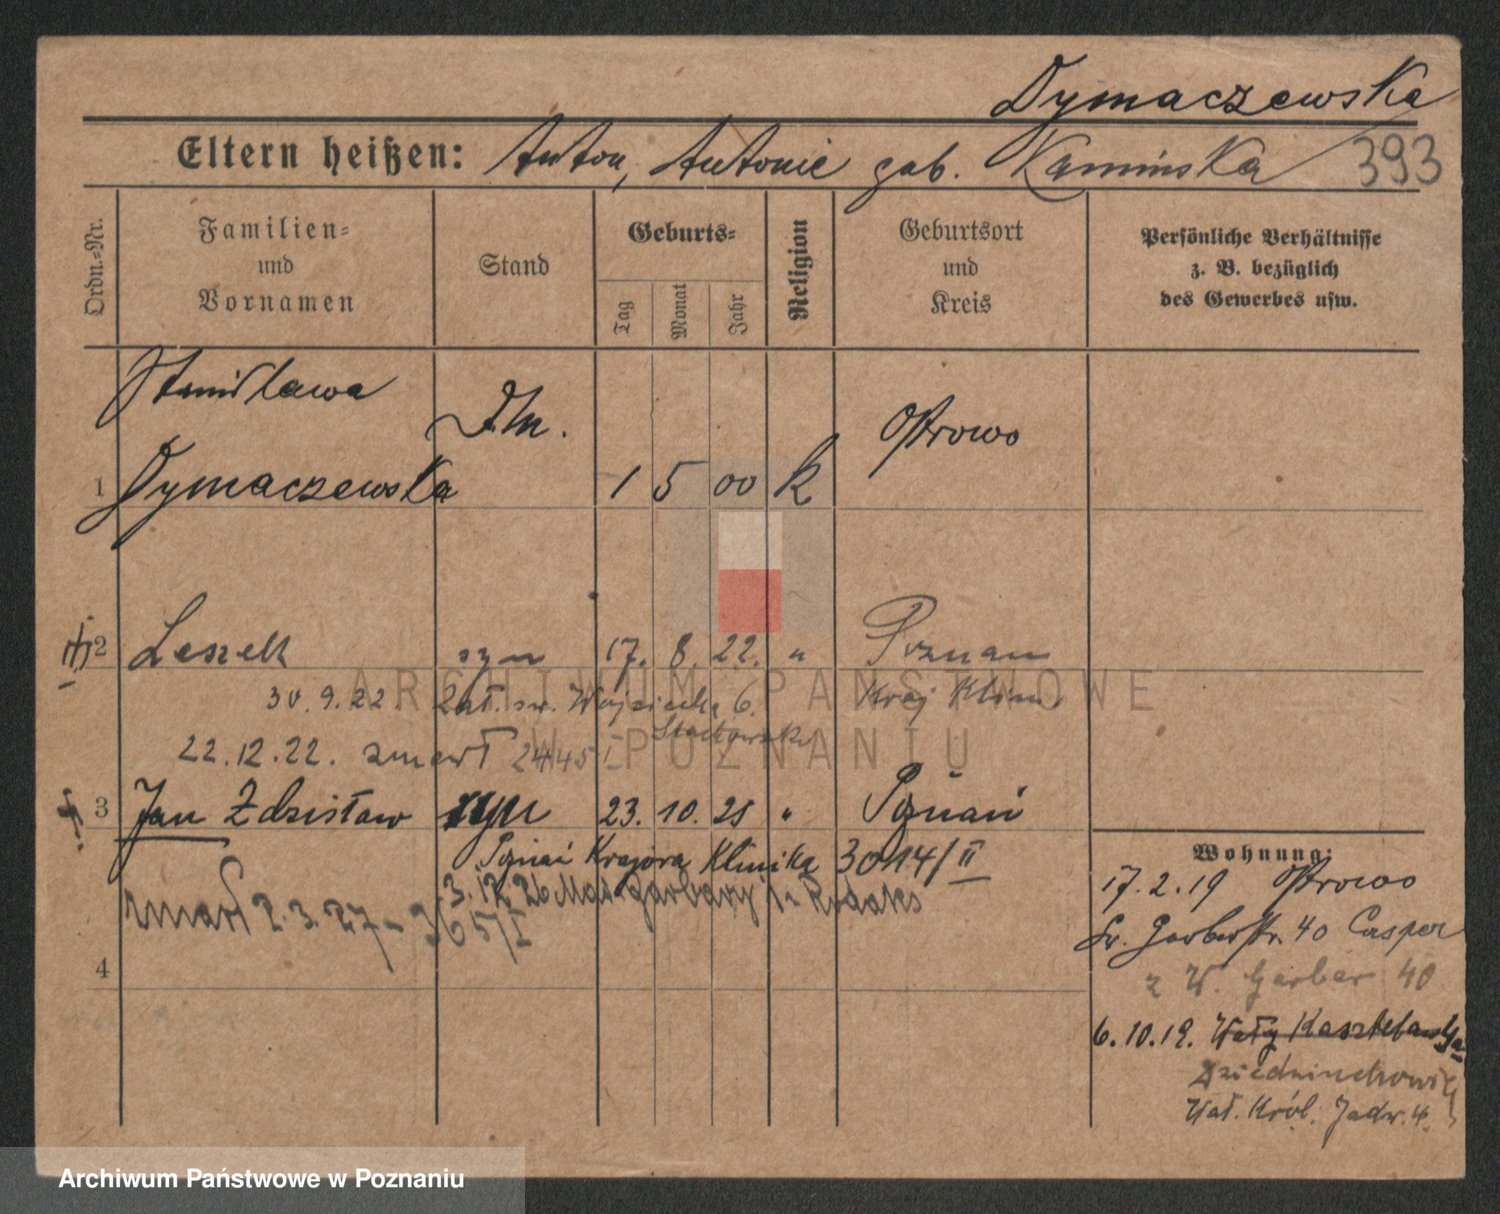 Dymaczewska
Eltern heißen: Anton, Antonie geb. Kaminska 393
Ordn.-Nr.
Familien- und Vornamen
Stand
Geburts-
Tag
Monat
Jahr
Religion
Geburtsort und Kreis
Persönliche Verhältnisse z. B. bezüglich des Gewerbes usw.
Stanislawa
Dm. Ostrowo
1 Dymaczewska 1 5 00 k
2 Leszek syn 17. 8. 22. " Poznań
30.9.22 św. Wojciecha 6. Kraj Klin.
22.12.22. zmarł 2445 I
3 Jan Zdzisław syn 23. 10. 25 " Poznań
Poznań Krajowa Klinika 3014/II
3.12.26 Małe Garbary
zmarł 2.3.27 - 365/I
4
Wohnung:
17.2.19 Ostrowo
Gr. Gerberstr. 40 Casper
z W. Garbar 40
6.10.19. Wały Kasztelańskie
Wał. Król. Jadw. 4.
ARCHIWUM PAŃSTWOWE
W POZNANIU
Archiwum Państwowe w Poznaniu